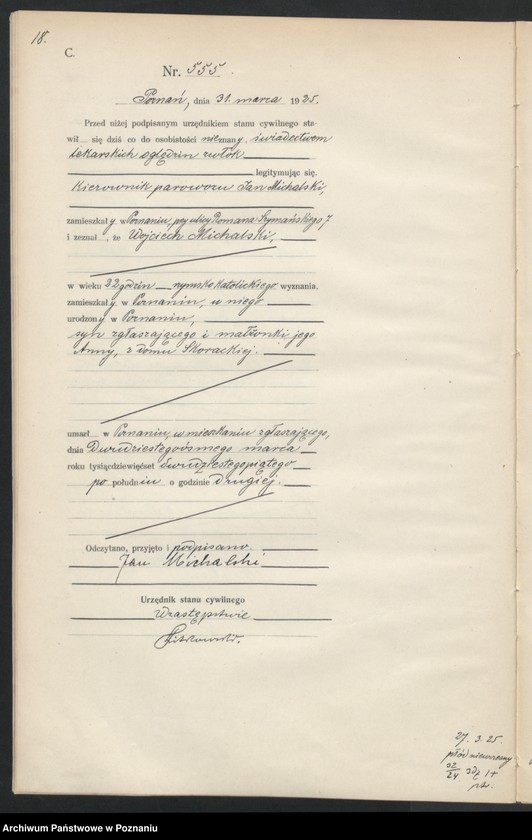 18.
C.
Nr. 555.
Poznań, dnia 31. marca 1925.
Przed niżej podpisanym urzędnikiem stanu cywilnego sta-
wił się dziś co do osobistości nieznany, świadectwem
lekarskich oględzin zwłok
legitymując się.
Kierownik parowozu Jan Michalski,
zamieszkały w Poznaniu, przy ulicy Romana Szymańskiego 7
i zeznał, że Wojciech Michalski,
w wieku 22 godzin rzymsko katolickiego wyznania,
zamieszkały w Poznaniu, u niego
urodzony w Poznaniu,
syn zgłaszającego i małżonki jego
Anny, z domu Skorackiej.
umarł w Poznaniu, w mieszkaniu zgłaszającego,
dnia Dwudziestegoósmego marca
roku tysiącdziewięćset dwudziestegopiątego
po południu o godzinie drugiej.
Odczytano, przyjęto i podpisano.
Jan Michalski
Urzędnik stanu cywilnego
W zastępstwie
27. 3. 25.
płód niewczesny
Archiwum Państwowe w Poznaniu